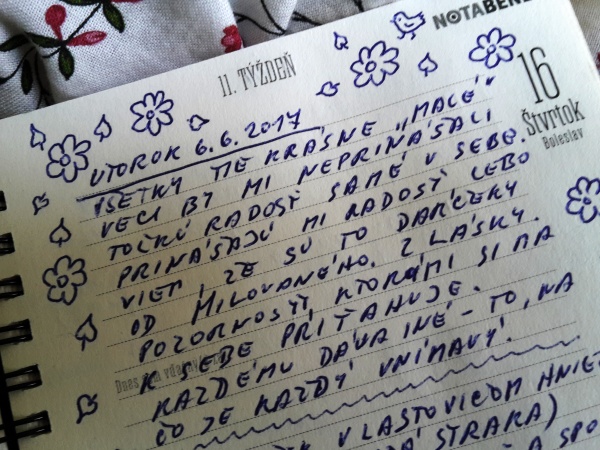 NOTABENE
11. TÝŽDEŇ
16
Štvrtok
Boleslav
UTOROK 6.6.2017
VŠETKY TIE KRÁSNE „MALÉ"
VECI BY MI NEPRINÁŠALI
TOĽKÚ RADOSŤ SAMÉ V SEBE.
PRINÁŠAJÚ MI RADOSŤ LEBO
VIEM, ŽE SÚ TO DARČEKY
OD MILOVANÉHO. Z LÁSKY.
POZORNOSTI KTORÝMI SI MA
K SEBE PRIŤAHUJE.
KAŽDÉMU DÁVA INÉ - TO, NA
ČO JE KAŽDÝ VNÍMAVÝ.
Dnes
V LASTOVIČOM
STRAKA)